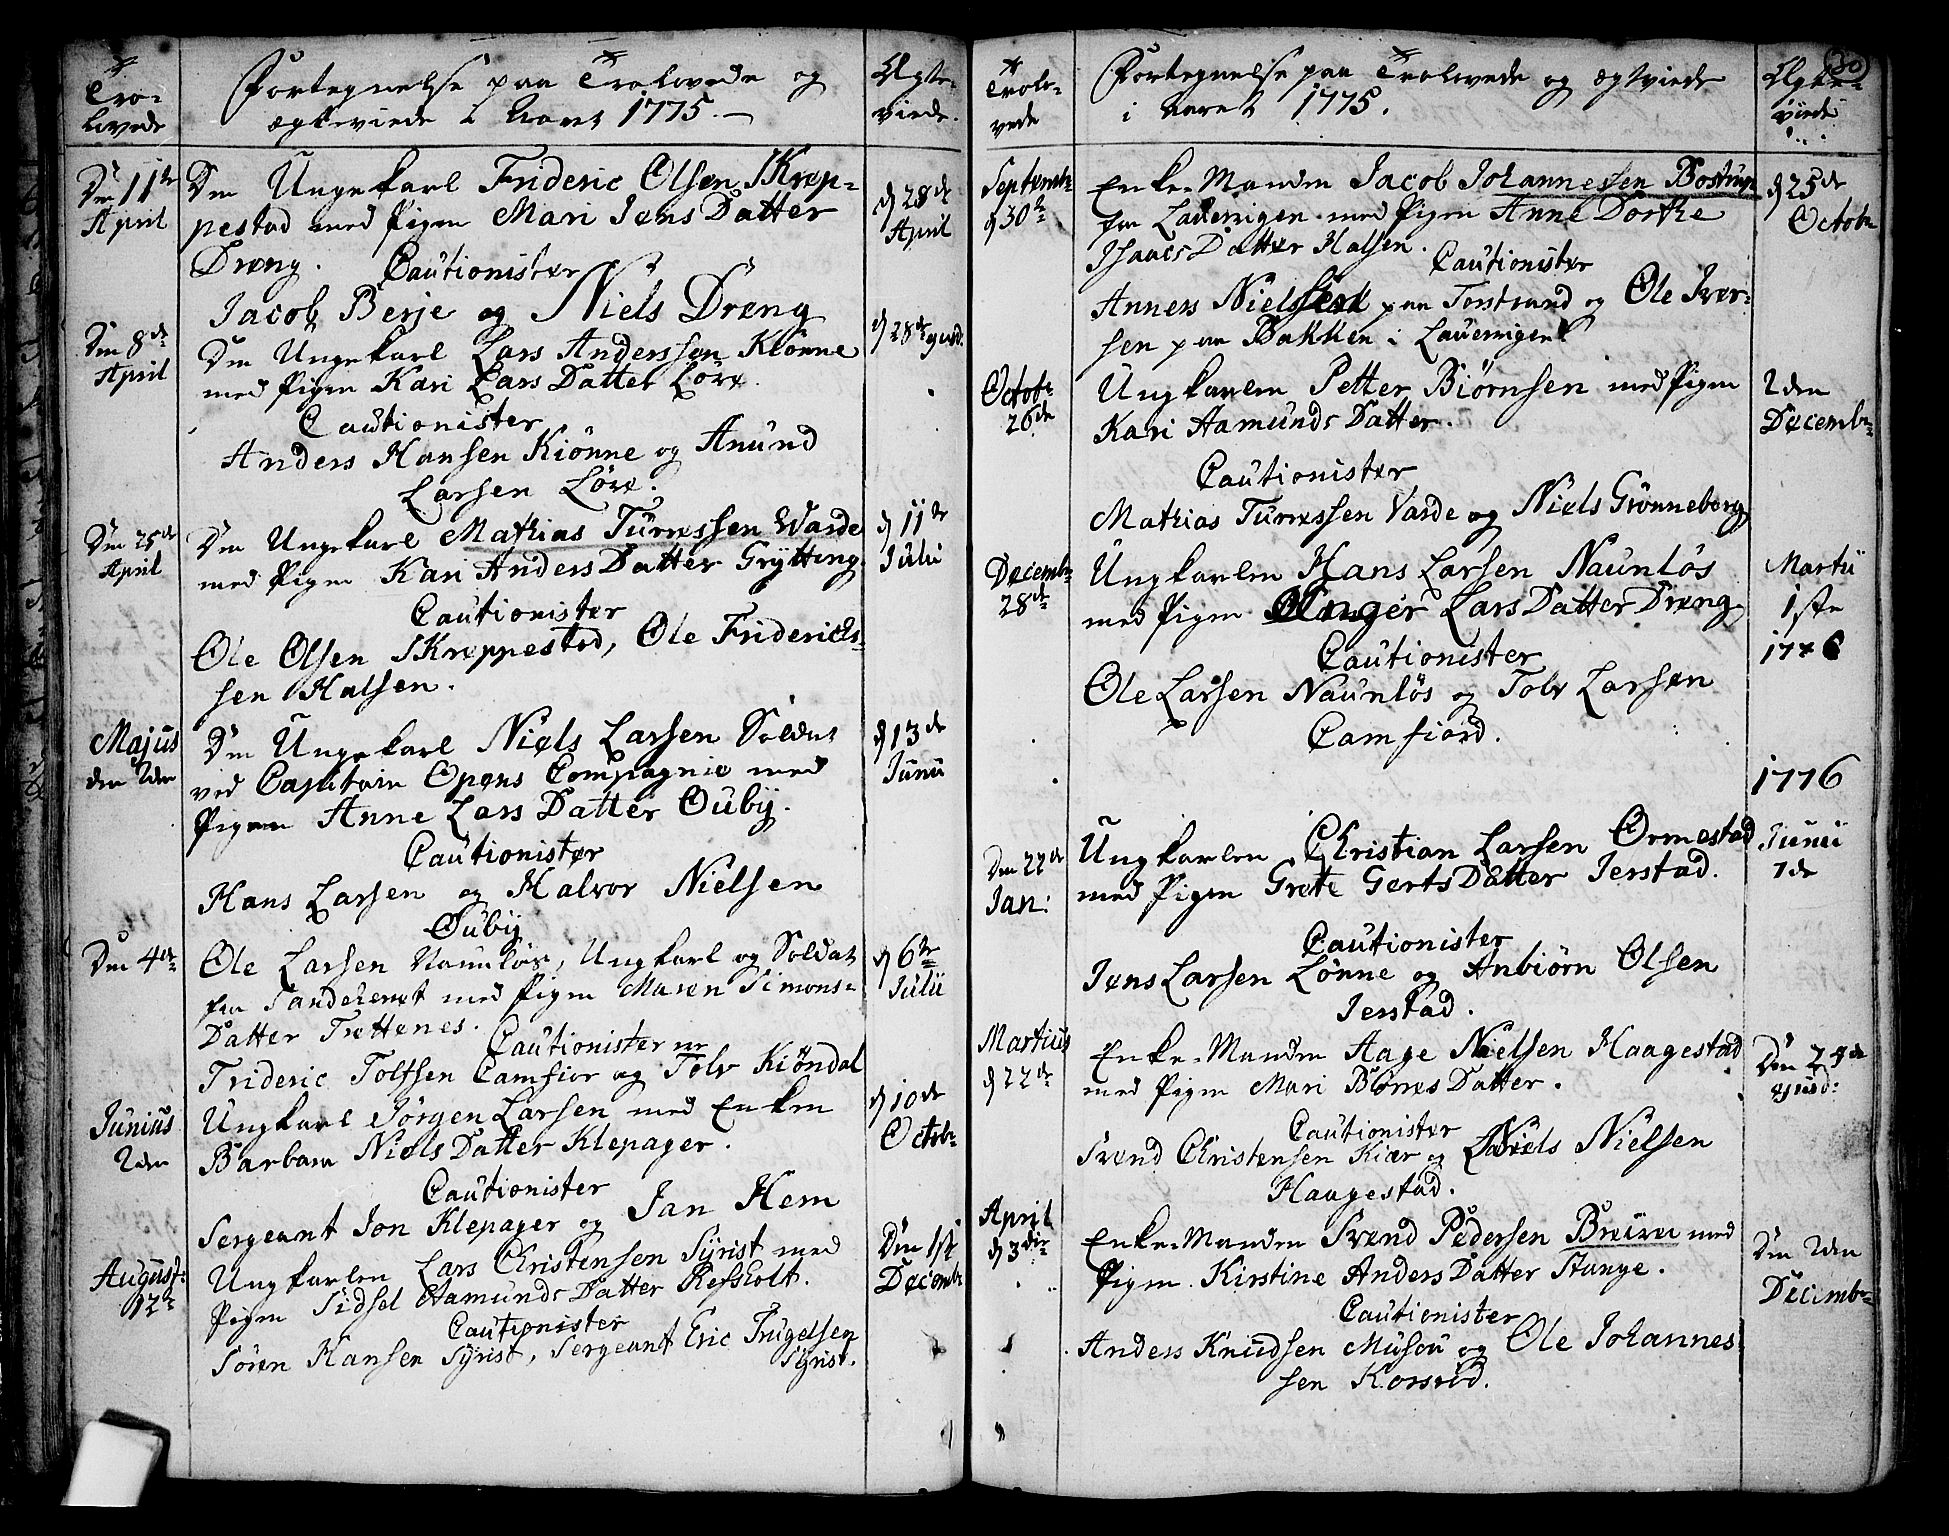 Tro-
lovede
Fortegnelse paa Trolovede og
ægteviede i Aaret 1775.
Ægte-
viede.
Den 11te
April
Den Ungekarl Frideric Olsen Skrep-
pestad med Pigen Mari Jens Datter
Dreng. Cautionister
Jacob Berje og Niels Dreng
d 28de
April
Den 8de
April
Den Ungekarl Lars Anderssen Kiönne
med Pigen Kari Lars Datter Löve.
Cautionister
Anders Hansen Kiönne og Anund
Larsen Löve.
d 28de ejusd:
Den 25de
April
Den Ungekarl Mathias Turressen Warde
med Pigen Kari Anders Datter Grÿtting
Cautionister
Ole Olsen Skreppestad, Ole Friderich-
sen Halsen.
d 11te
Julii
Majus
den 2den
Den Ungekarl Niels Larsen Soldat
ved Capitain Opens Compagnie med
Pigen Anne Lars Datter Oubÿ.
Cautionister
Hans Larsen og Halvor Nielsen
Oubÿ
d 13de
Junii
Den 4de
Ole Larsen Naunlös, Ungkarl og Soldat
fra Sandeherret med Pigen Maren Simons-
Datter Trettenes.
Cautionister
Frideric Tolfsen Camfior og Tolv Kiöndal
d 6te
Julii
Junius
2den
Ungkarl Jörgen Larsen med Enken
Barbara Niels Datter Klepager.
Cautionister
Sergeant Jon Klepager og Jan Hem
d 10de
Octob:
August:
12te
Ungkarlen Lars Christensen Sÿrist med
Pigen Sidsel Aamunds Datter Refsholt.
Cautionister
Sören Hansen Sÿrist, Sergeant Eric Trugelsen
Sÿrist.
Den 1ste
Decemb:
30
Trolo-
vede
Fortegnelse paa Trolovede og ægtviede
i Aaret 1775.
Ægte-
viede
Septemb:
d 30te
Enke-Manden Jacob Johannessen Bostrup
fra Lauervigen med Pigen Anne Dorthe
Isaacs Datter Halsen.
Cautionister
Anners Nielssen paa Torstrand og Ole Iver-
sen paa Bakken i Lauervigen
d 25de
Octob:
Octob:
26de
Ungkarlen Petter Biörnsen med Pigen
Kari Aamunds Datter.
Cautionister
Mathias Turressen Varde og Niels Grönneberg
2den
Decemb:
Decemb:
28de
Ungkarlen Hans Larsen Naunlös
med Pigen Anger Lars Datter Dreng
Cautionister
Ole Larsen Naunlös og Tolv Larsen
Camfiord.
Martii
1ste
1776
1776
Den 22de
Jan:
Ungkarlen Christian Larsen Ormestad
med Pigen Grete Gerts Datter Jerstad.
Cautionister
Jens Larsen Lönne og Anbiörn Olsen
Jerstad.
Junii
7de
Martius
d 22de
Enke-Manden Aage Nielsen Haagestad
med Pigen Mari Börres Datter.
Cautionister
Svend Christensen Kiær og Niels Nielsen
Haagestad.
Den 28de
ejusd:
April
d 3die
Enke-Manden Svend Pedersen Breiva med
Pigen Kirstine Anders Datter Stange.
Cautionister
Anders Knudsen Musou og Ole Johannes
sen Korsvod.
Den 2den
Decemb: